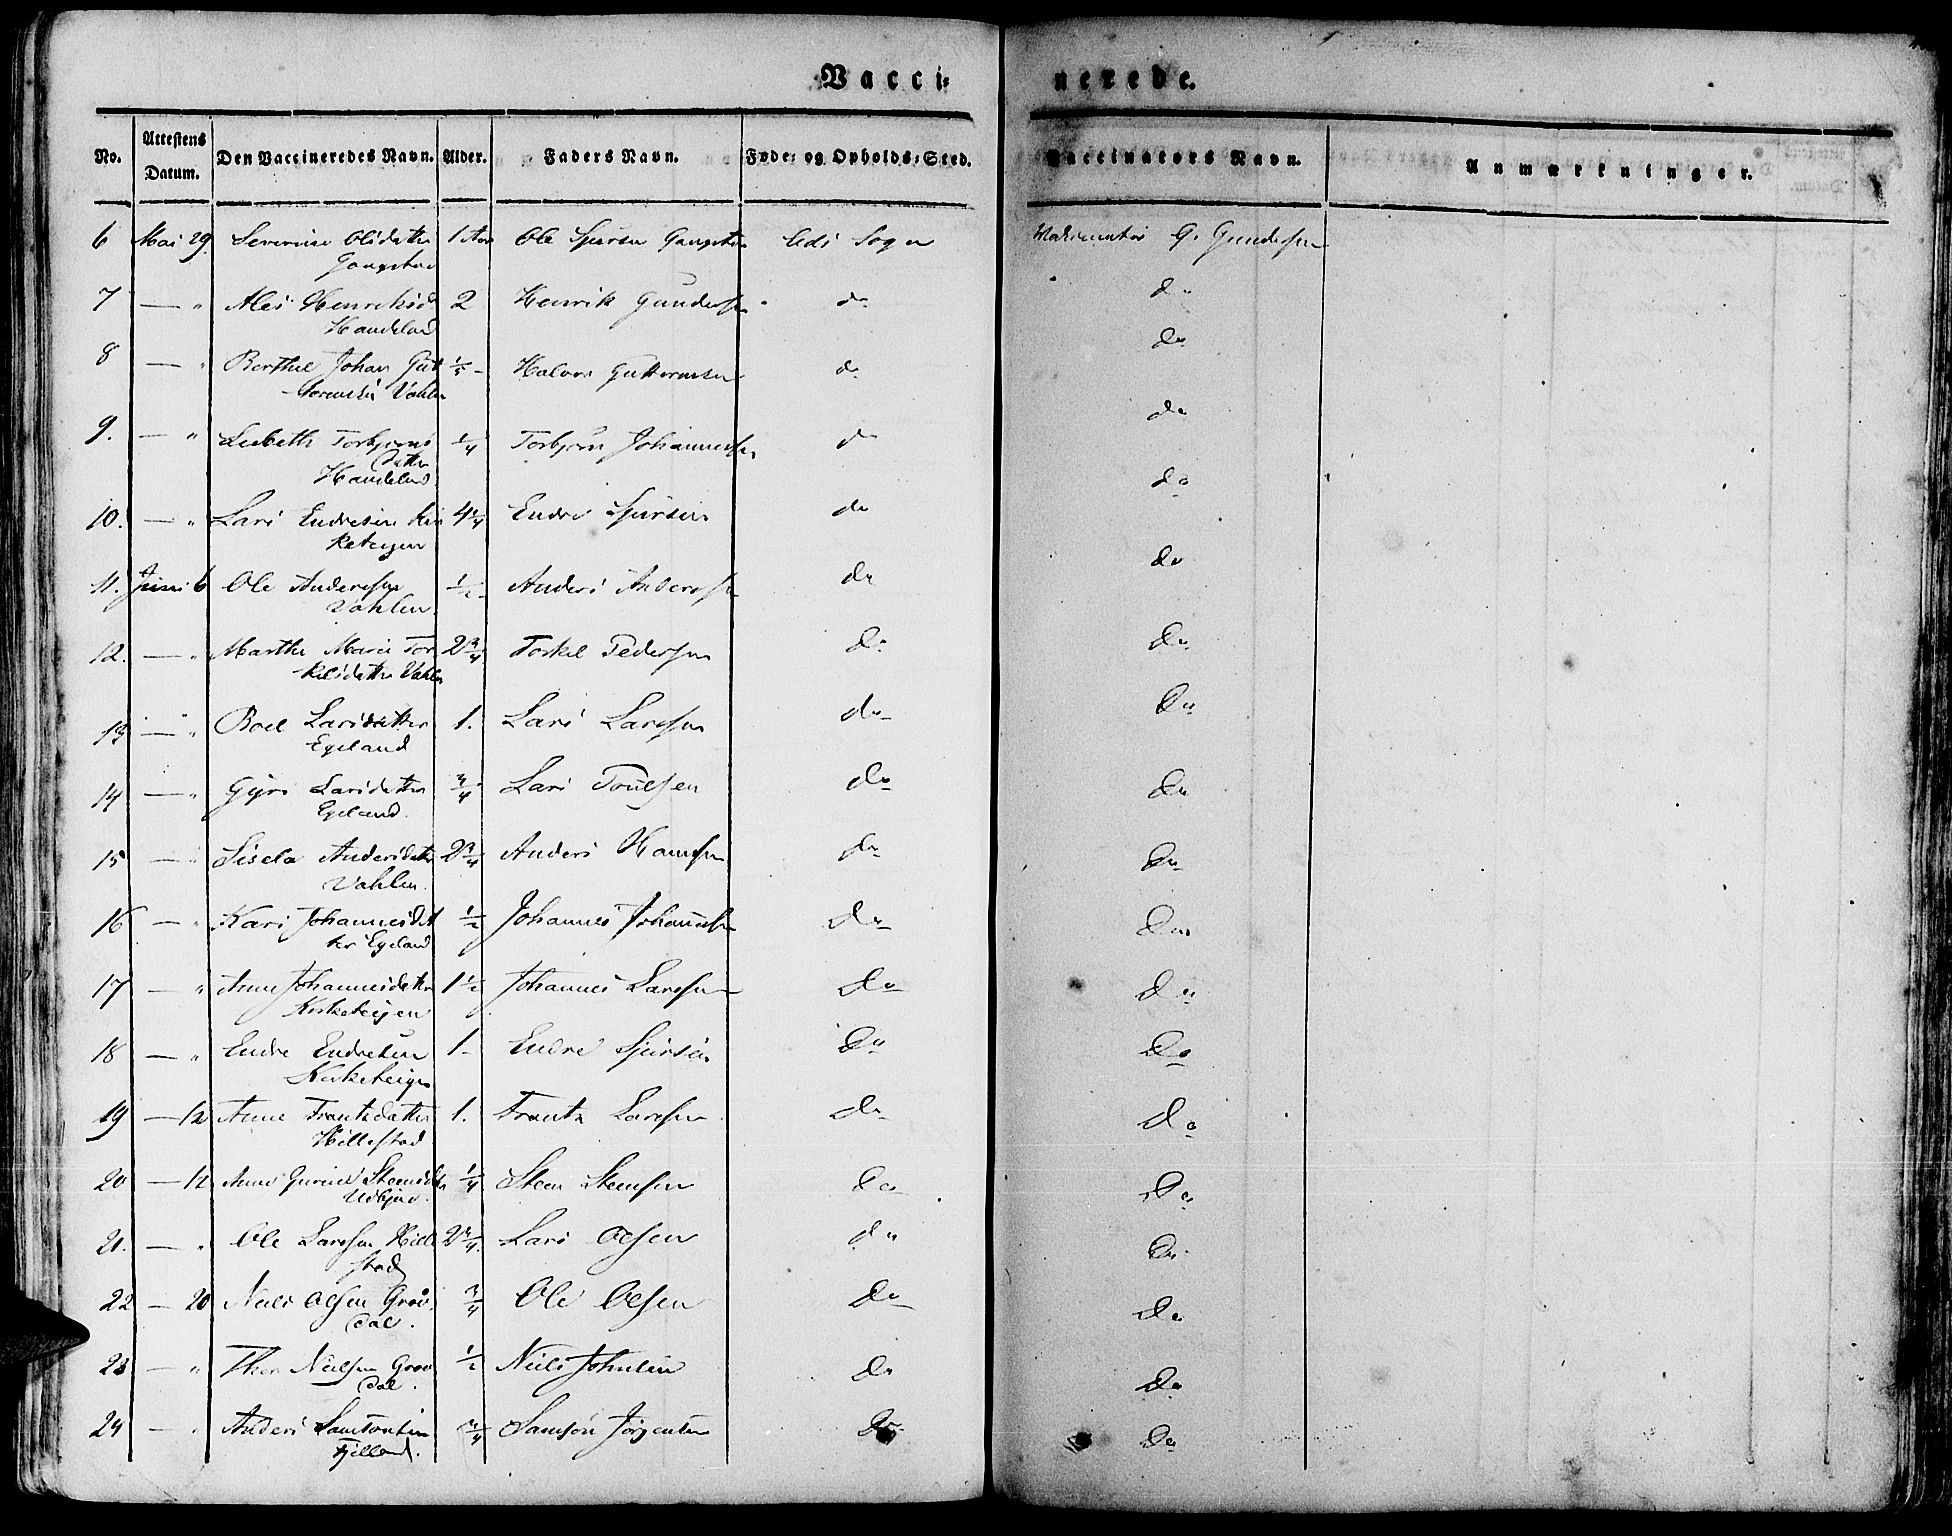 Vacci- nerede.
No. Attestens Datum. Den Vaccineredes Navn. Alder. Faders Navn. Føde- og Opholds-Sted. Vaccinators Navn. Anmærkninger.
6 Mai 29. Severine Olsdatter 1 Aar Ole Sjursen Gangstø Sogn G. Gundersen
7 — " Henriks 2 Henrik Gundersen do do
Haukeland
8 — " Berthel Johan Gut Halvor Guttormsen do do
tormsen Vahlen
9. — " Lisbeth Torbjørns 1/4 Torbjørn Johannessen do do
datter
Haukeland
10. — " Lars Endresen Kir 4 1/4 Endre Sjursen do do
keteigen
11. Juni 6 Ole Andersen 1/2 Anders Andersen do do
Vahlen.
12. — " Marthe Marie Tor 2 3/4 Torkel Pedersen do do
kelsdatter Vahlen
13 — " Boel Larsdatter 1. Lars Larsen do do
Egeland
14 — " Gyri Larsdatter 3/4 Lars Poulsen do do
Egeland.
15 — " Sisela Andersdatter 2 3/4 Anders Hansen do do
Vahlen.
16 — " Kari Johannesdat 1/2 Johannes Johannessen do do
ter Egeland
17 — " Anne Johannesdatter 1 1/2 Johannes Larsen do do
Kirketeigen
18 — " Endre Endresen 1. Endre Sjursen do do
Kirketeigen
19 — 12 Anne Frantzdatter 1. Frantz Larsen do do
Hillestad
20 — 12 Anne Gurine Steensdtr 1/4 Steen Steensen do do
21. — " Ole Larsen Hille 2 3/4 Lars Olsen do do
stad
22 — 20 Niels Olsen Grøv 3/4 Ole Olsen do do
dal.
23 — " Nielsen Grøv 1/2 Niels Johnsen do do
dal.
24 — " Anders Samsonsen 3/4 Samson Jørgensen do do
Fjelland.